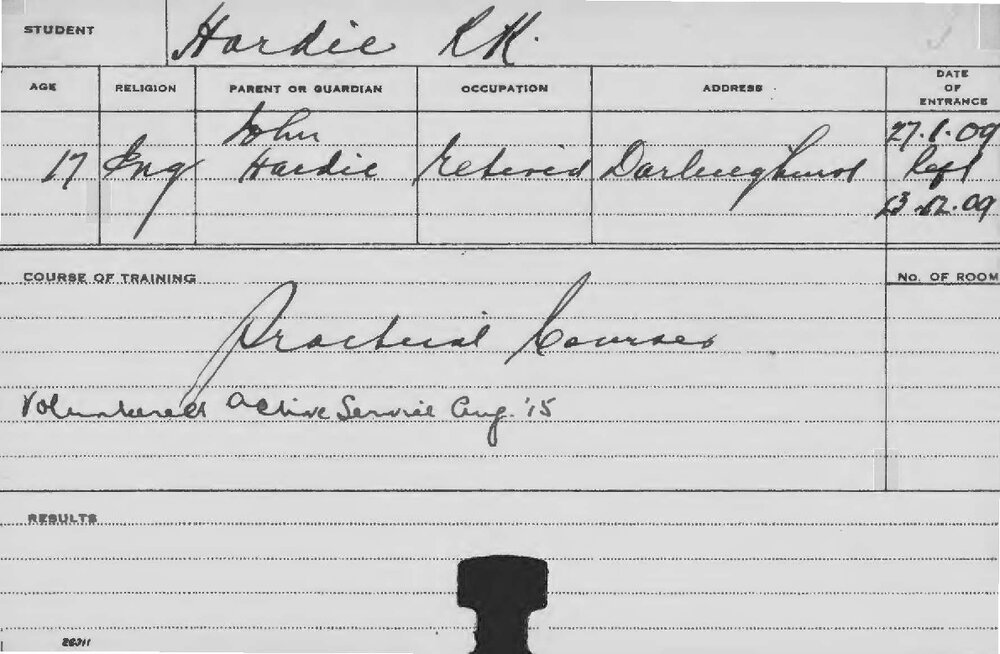 STUDENT Hardie R K.
AGE RELIGION PARENT OR GUARDIAN OCCUPATION ADDRESS DATE OF ENTRANCE
John 27.1.09
17 Eng Hardie Retired Darlinghurst left
23.12.09
COURSE OF TRAINING No. OF ROOM
Practical Courses
Volunteered Active Service Aug. '15
RESULTS
26311